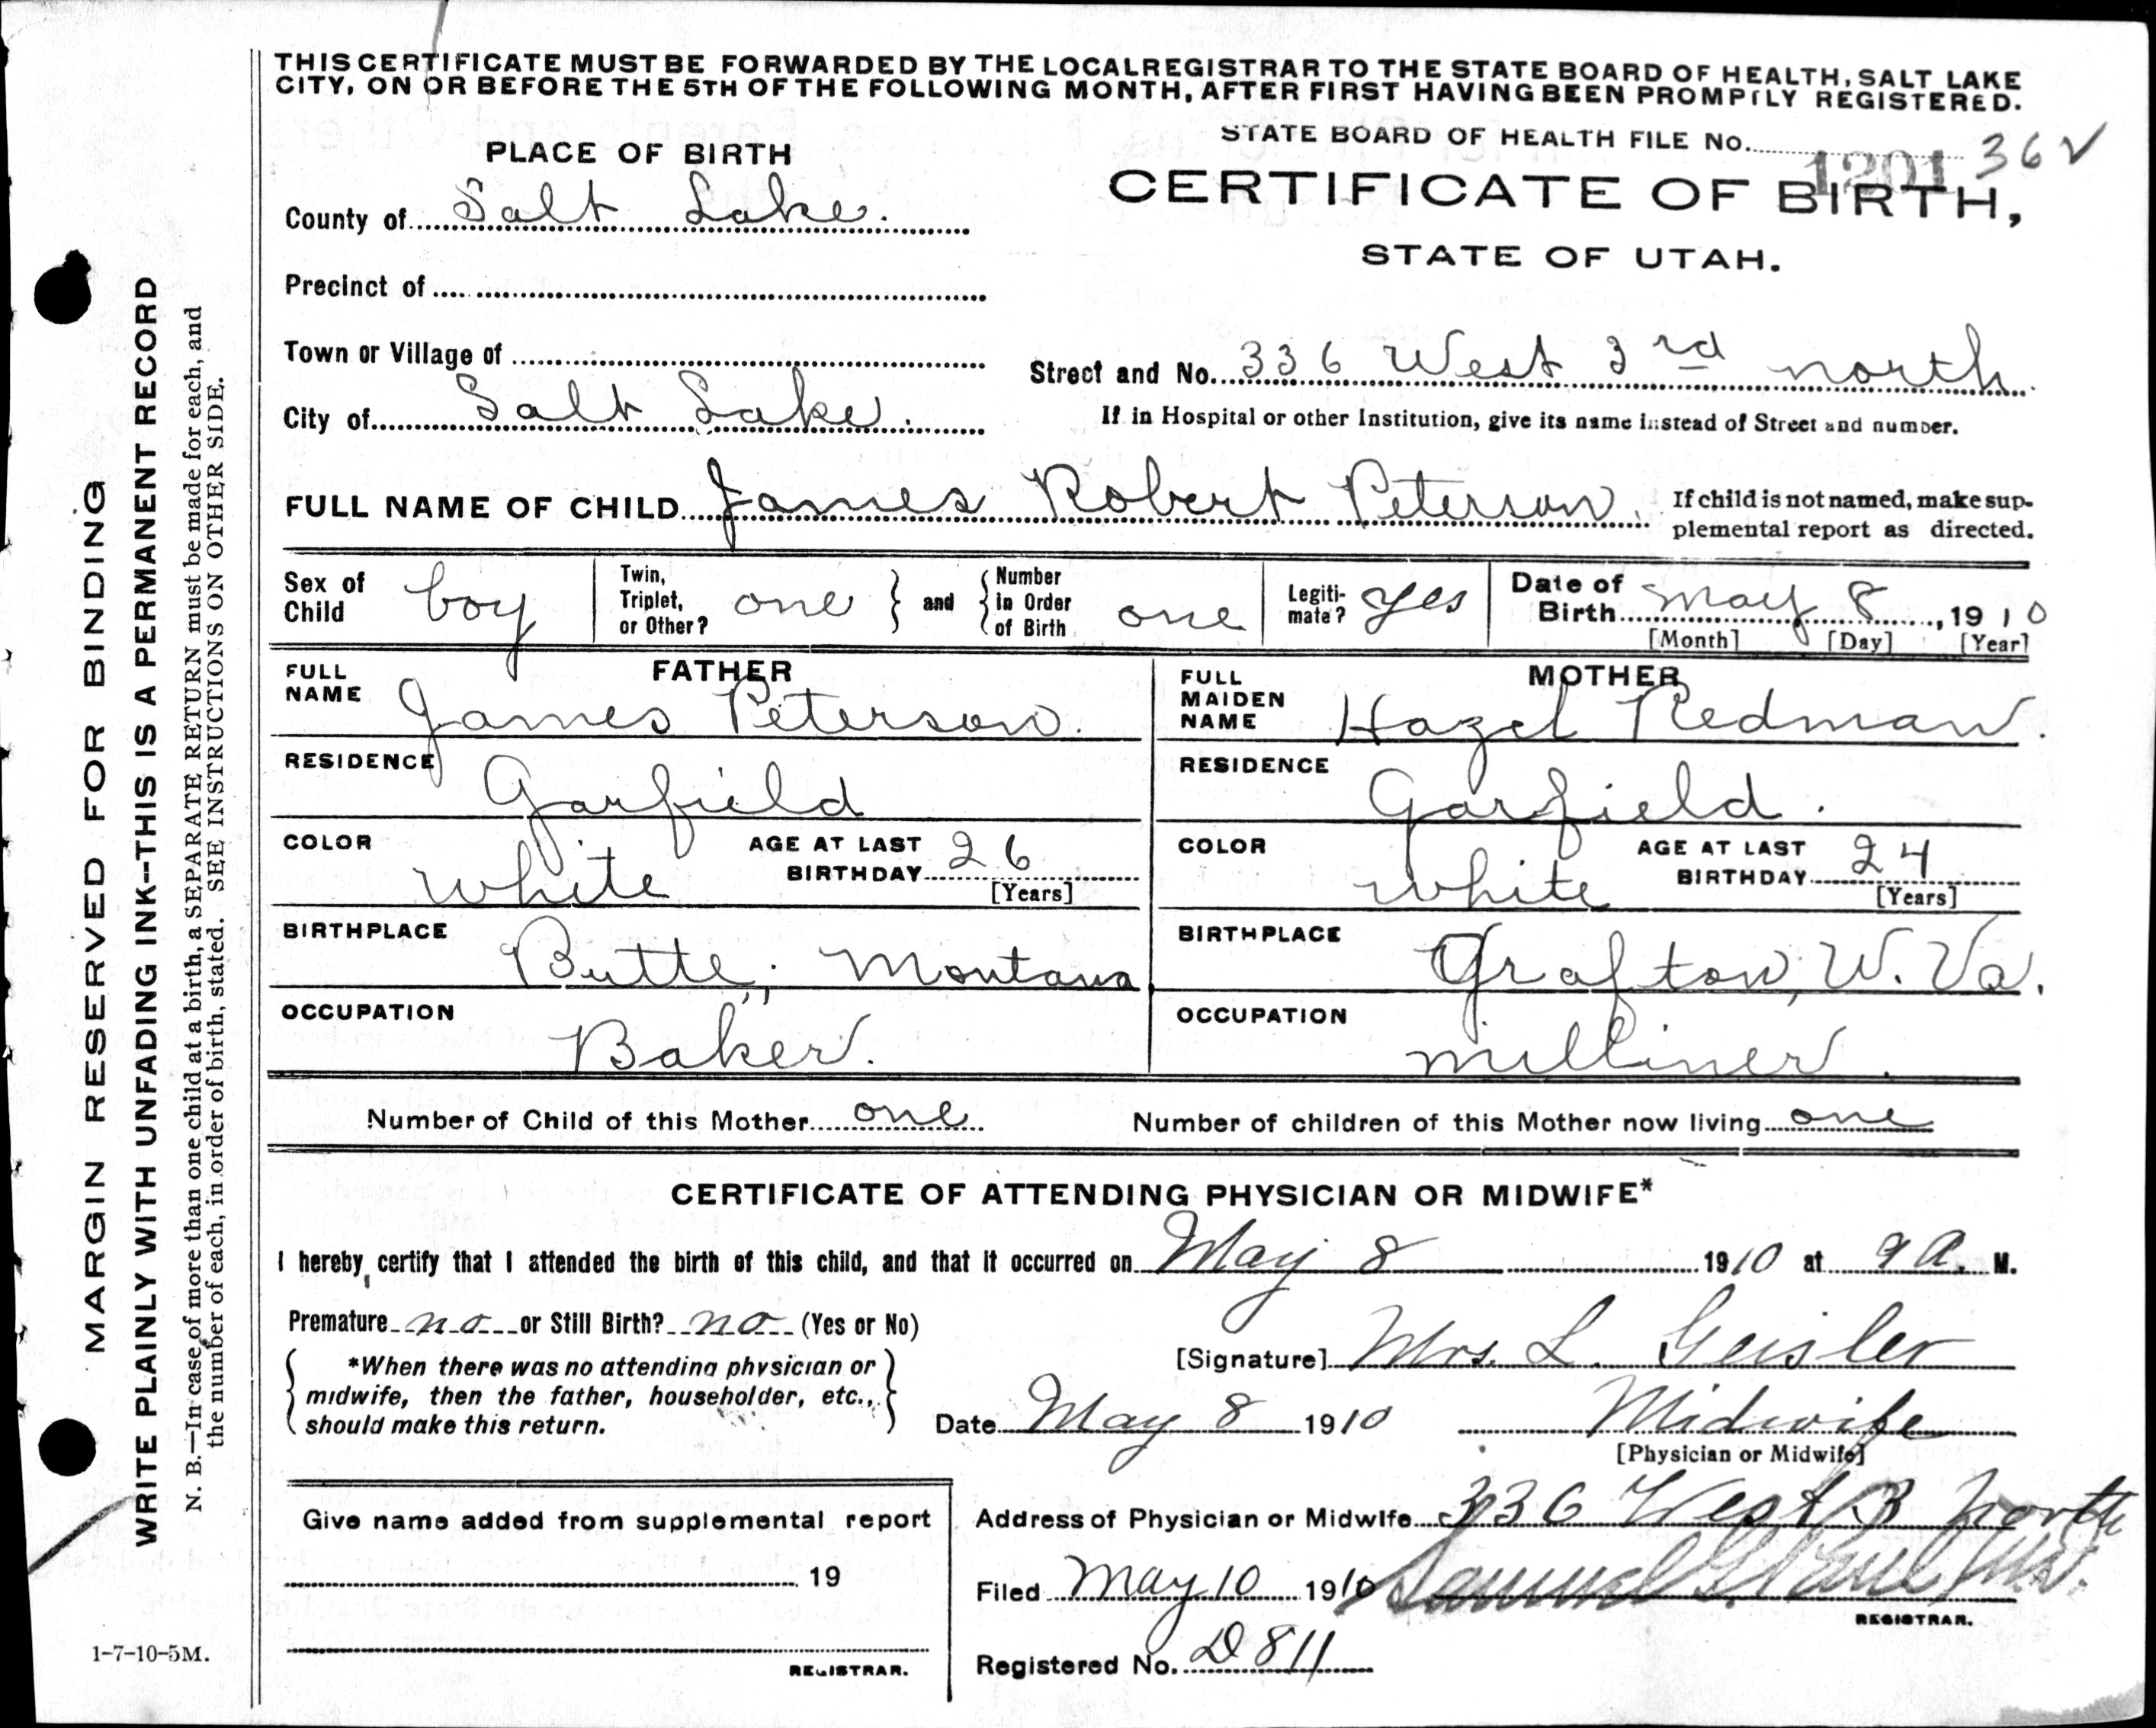 THIS CERTIFICATE MUST BE FORWARDED BY THE LOCAL REGISTRAR TO THE STATE BOARD OF HEALTH, SALT LAKE
CITY, ON OR BEFORE THE 5TH OF THE FOLLOWING MONTH, AFTER FIRST HAVING BEEN PROMPTLY REGISTERED.
STATE BOARD OF HEALTH FILE No. 1201 36 ✓
PLACE OF BIRTH
CERTIFICATE OF BIRTH,
STATE OF UTAH.
County of Salt Lake.
Precinct of
Town or Village of
Street and No. 336 West 3rd north
City of Salt Lake.
If in Hospital or other Institution, give its name instead of Street and number.
FULL NAME OF CHILD James Robert Peterson.
If child is not named, make sup-
plemental report as directed.
Sex of Child boy
Twin, Triplet, or Other? one and Number in Order of Birth one
Legiti-mate? yes
Date of Birth May 8, 1910
[Month] [Day] [Year]
FATHER
FULL NAME James Peterson.
RESIDENCE Garfield
COLOR White AGE AT LAST BIRTHDAY 26
[Years]
BIRTHPLACE Butte, Montana
OCCUPATION Baker.
MOTHER
FULL MAIDEN NAME Hazel Redman.
RESIDENCE Garfield.
COLOR White AGE AT LAST BIRTHDAY 24
[Years]
BIRTHPLACE Grafton, W. Va.
OCCUPATION milliner.
Number of Child of this Mother one Number of children of this Mother now living one
CERTIFICATE OF ATTENDING PHYSICIAN OR MIDWIFE*
I hereby certify that I attended the birth of this child, and that it occurred on May 8 1910 at 9 A. M.
Premature no or Still Birth? no (Yes or No)
*When there was no attending physician or
midwife, then the father, householder, etc.,
should make this return.
[Signature] Mrs. L. Geisler
Date May 8 1910 Midwife
[Physician or Midwife]
Give name added from supplemental report
19
REGISTRAR.
Address of Physician or Midwife 336 West 3 North
Filed May 10 1910 Samuel G. Paul M.D.
REGISTRAR.
Registered No. D 811
1-7-10-5M.
MARGIN RESERVED FOR BINDING
WRITE PLAINLY WITH UNFADING INK--THIS IS A PERMANENT RECORD
N. B.—In case of more than one child at a birth, a SEPARATE RETURN must be made for each, and
the number of each, in order of birth, stated. SEE INSTRUCTIONS ON OTHER SIDE.